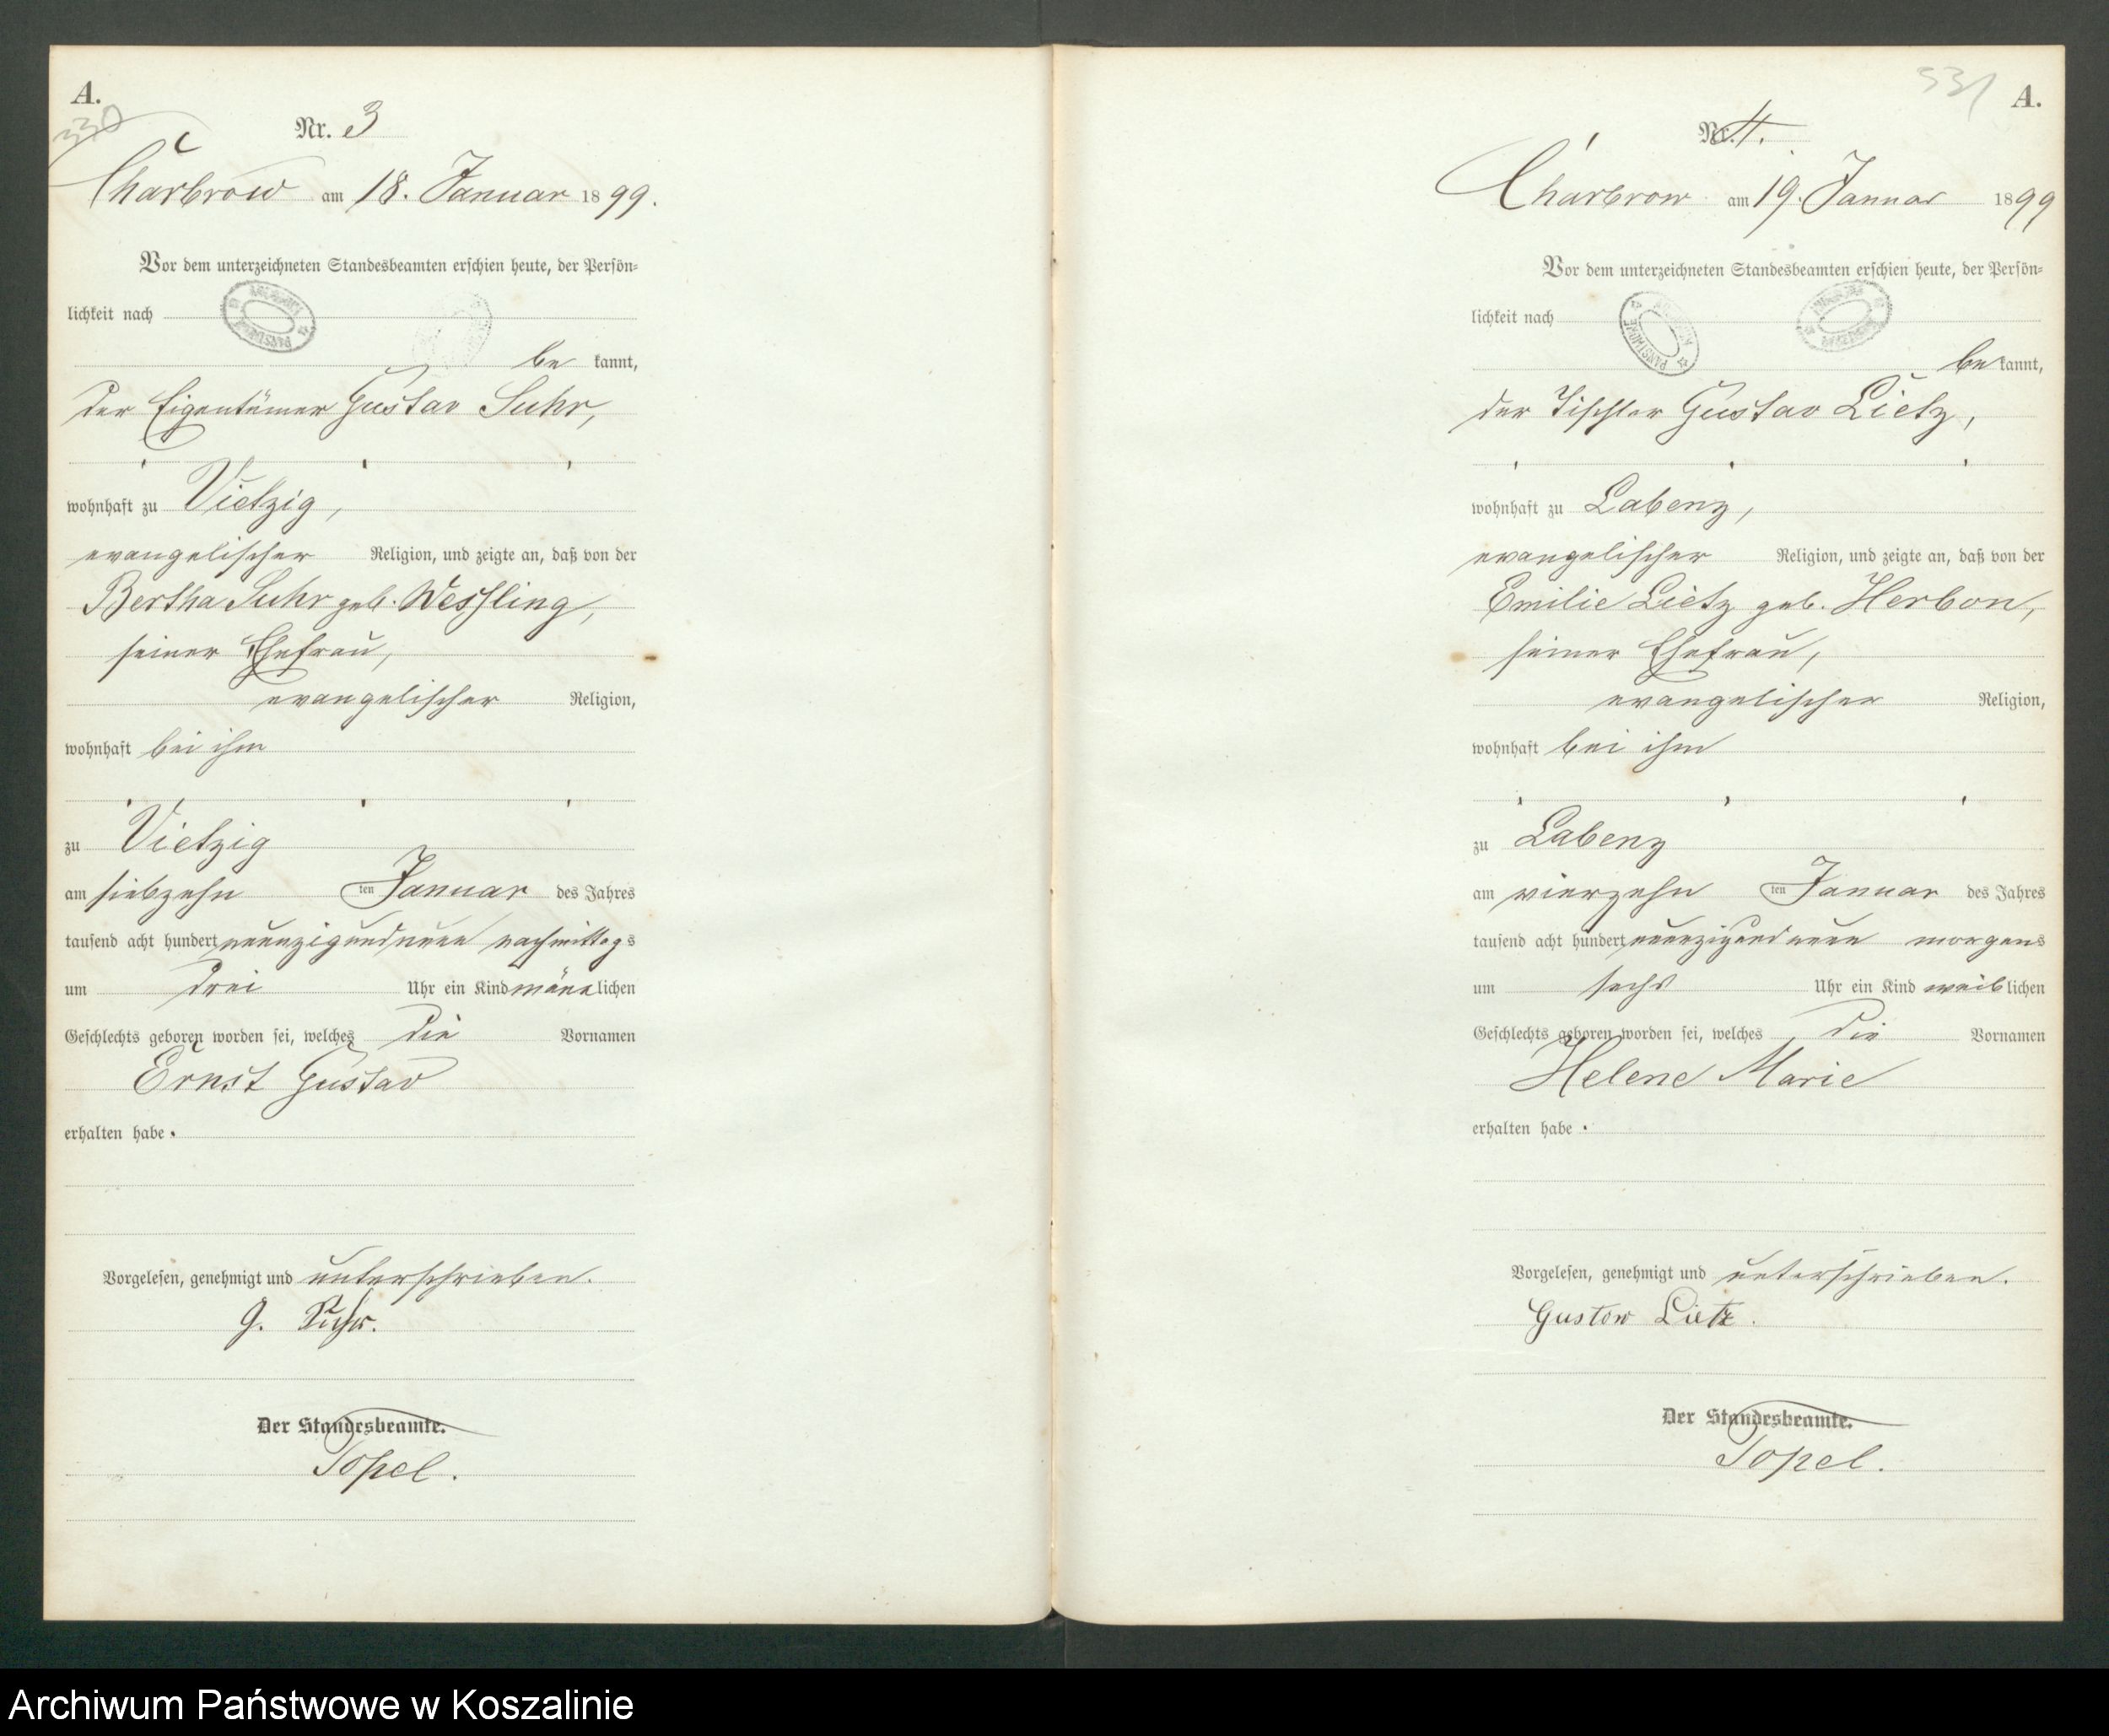 A.
330
Nr. 3
Charbrow am 18. Januar 1899.
Vor dem unterzeichneten Standesbeamten erschien heute, der Persön-
lichkeit nach
be kannt,
der Eigentümer Gustav Suhr,
wohnhaft zu Vietzig,
evangelischer Religion, und zeigte an, daß von der
Bertha Suhr geb. Wessling,
seiner Ehefrau,
evangelischer Religion,
wohnhaft bei ihm
zu Vietzig
am siebzehn ten Januar des Jahres
tausend acht hundert neunzigundneun nachmittags
um drei Uhr ein Kind männlichen
Geschlechts geboren worden sei, welches die Vornamen
Ernst Gustav
erhalten habe.
Vorgelesen, genehmigt und unterschrieben.
G. Suhr.
Der Standesbeamte.
Topel.
531
A.
Nr. 4.
Charbrow am 19. Januar 1899
Vor dem unterzeichneten Standesbeamten erschien heute, der Persön-
lichkeit nach
be kannt,
der Tischler Gustav Lietz,
wohnhaft zu Labenz,
evangelischer Religion, und zeigte an, daß von der
Emilie Lietz geb. Herbon,
seiner Ehefrau,
evangelischer Religion,
wohnhaft bei ihm
zu Labenz
am vierzehn ten Januar des Jahres
tausend acht hundert neunzigundneun morgens
um sechs Uhr ein Kind weiblichen
Geschlechts geboren worden sei, welches die Vornamen
Helene Marie
erhalten habe.
Vorgelesen, genehmigt und unterschrieben.
Gustav Lietz.
Der Standesbeamte.
Topel.
Archiwum Państwowe w Koszalinie